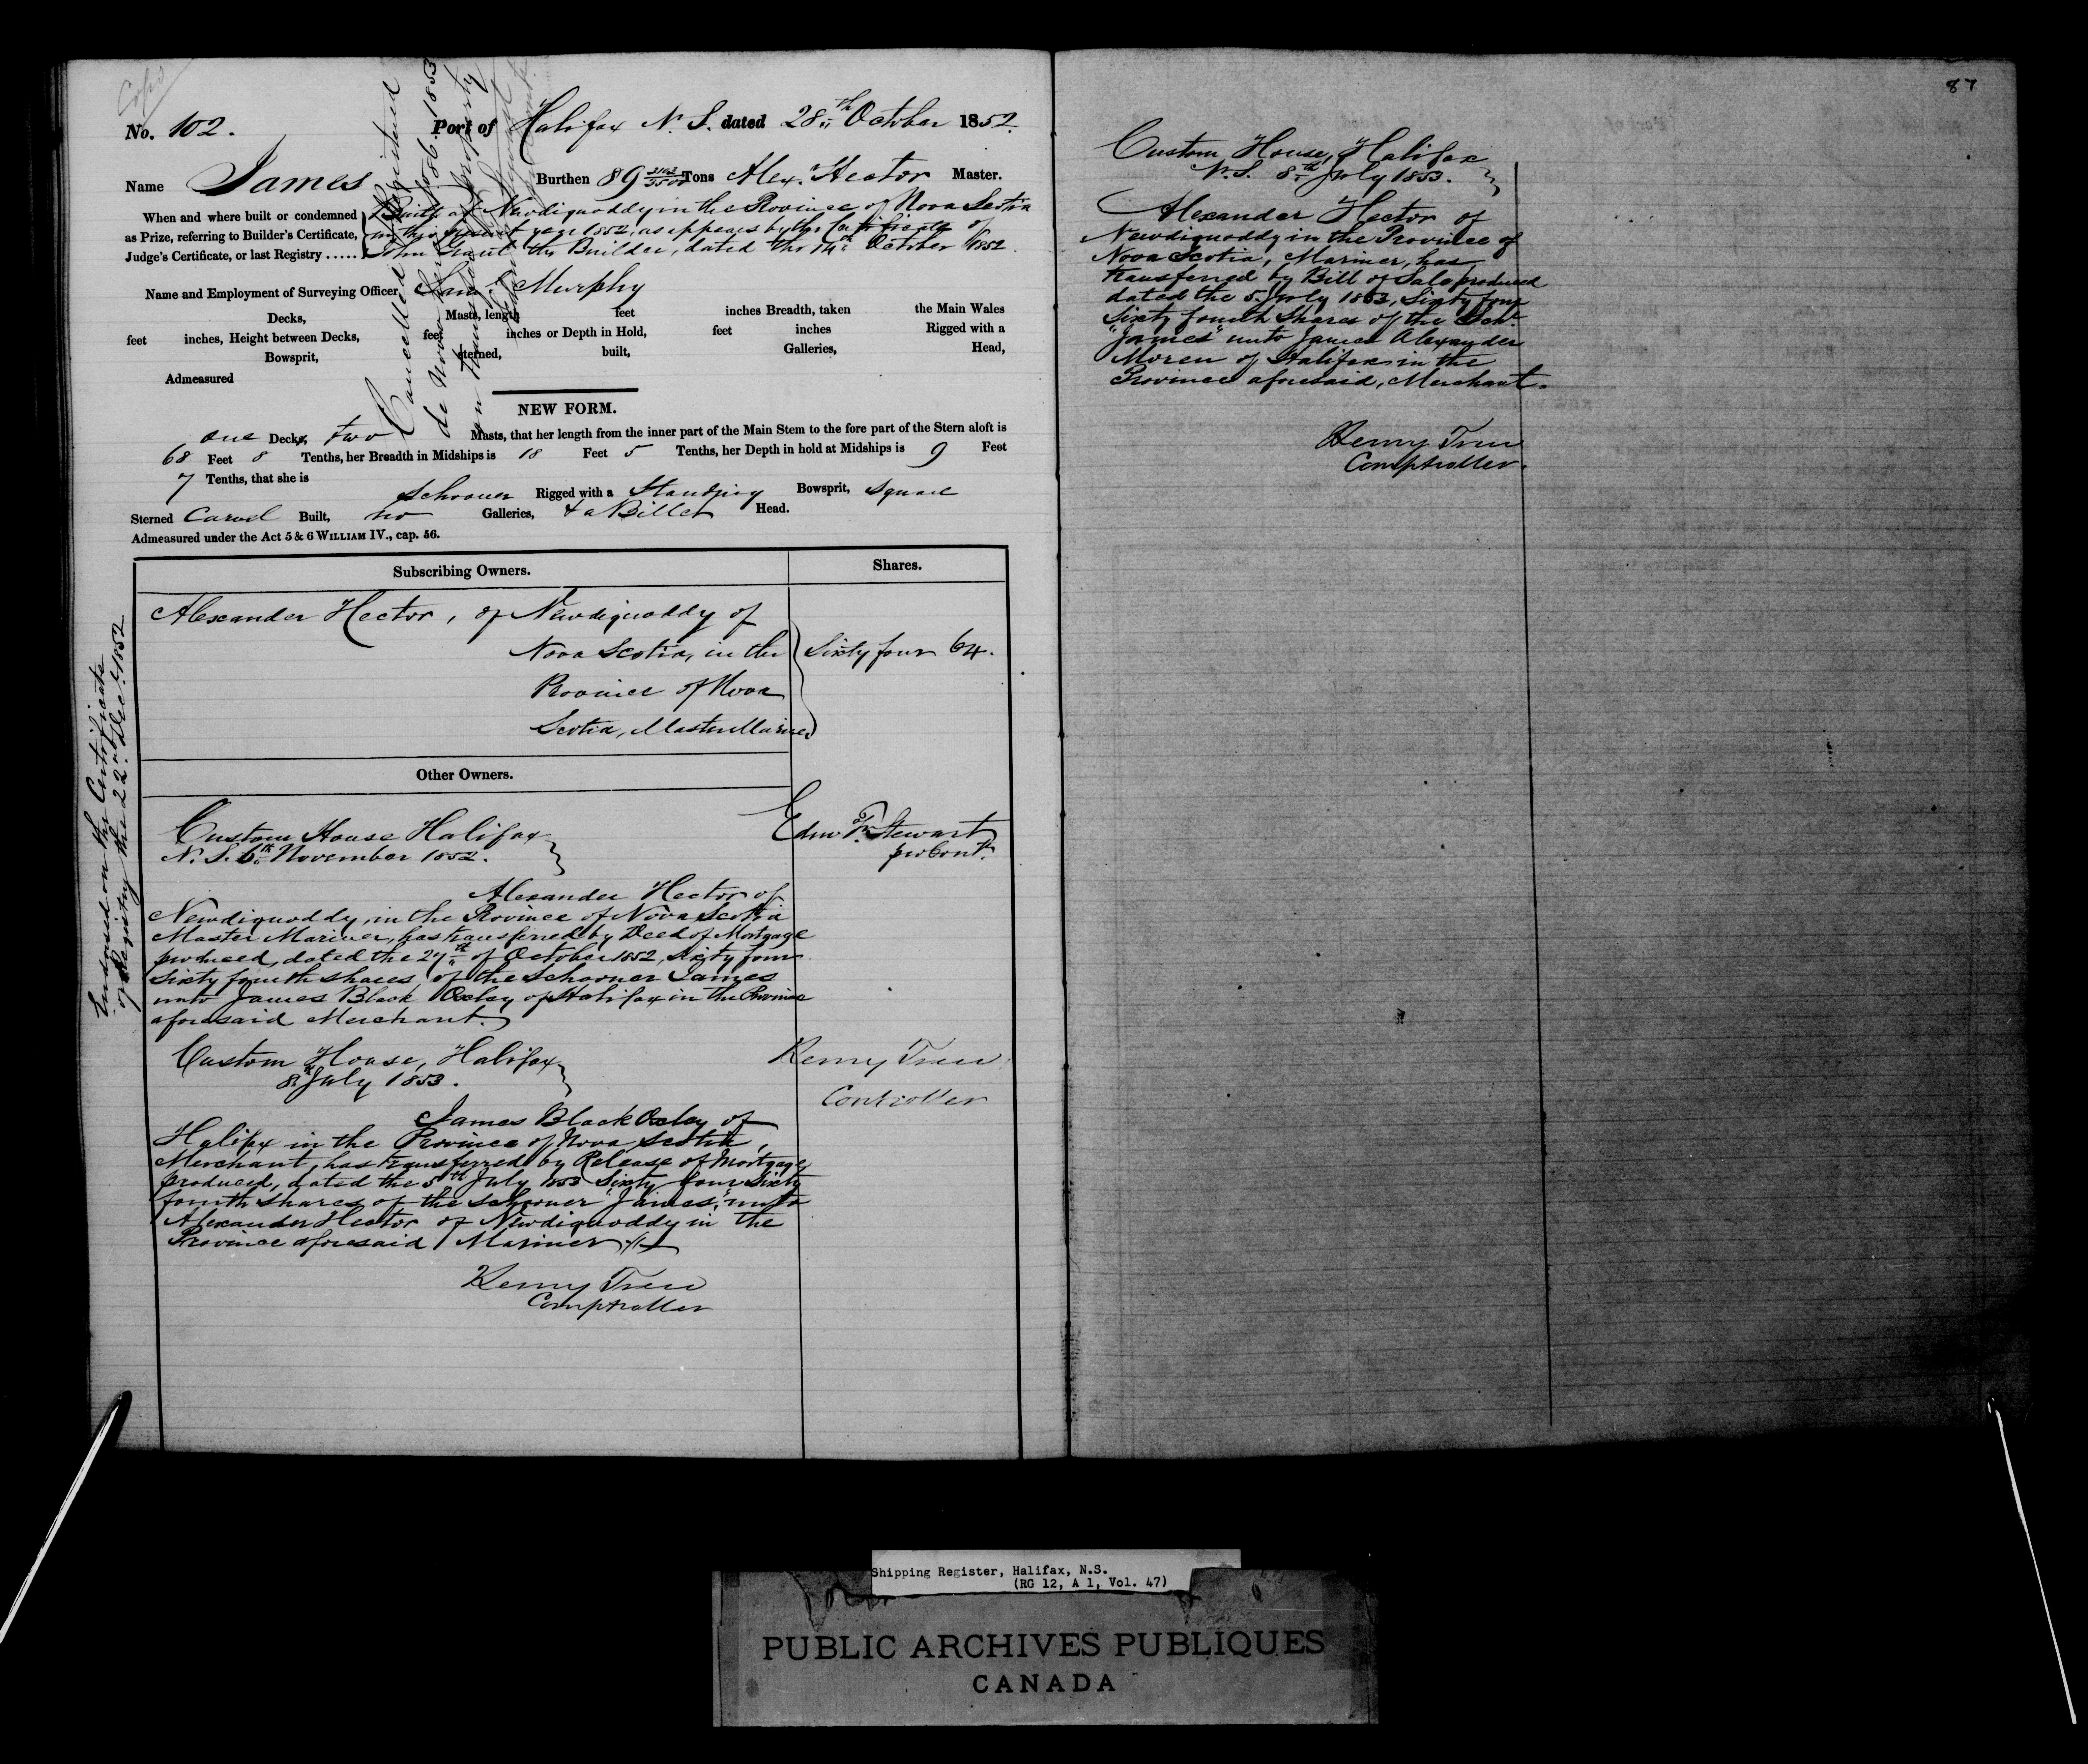 Copd
No. 102. Port of Halifax N. S. dated 28th October 1852.
Name James Burthen 89 Tons Alex. Hector Master.
When and where built or condemned
as Prize, referring to Builder's Certificate,
Judge's Certificate, or last Registry .....
Built at Newdiquoddy in the Province of Nova Scotia
in this present year 1852, as appears by the Certificate of
John Grant the Builder, dated the 14th October 1852.
Name and Employment of Surveying Officer, Murphy
Decks, Masts, length feet inches Breadth, taken the Main Wales
feet inches, Height between Decks, feet inches or Depth in Hold, feet inches Rigged with a
Bowsprit, sterned, built, Galleries, Head,
Admeasured
Cancelled Registered
de Novo 1853
on transfer of property
NEW FORM.
one Decks, two Masts, that her length from the inner part of the Main Stem to the fore part of the Stern aloft is
68 Feet 8 Tenths, her Breadth in Midships is 18 Feet 5 Tenths, her Depth in hold at Midships is 9 Feet
7 Tenths, that she is
Schooner Rigged with a Standing Bowsprit, square
Sterned Carvel Built, no Galleries, & a Billet Head.
Admeasured under the Act 5 & 6 WILLIAM IV., cap. 56.
Subscribing Owners. Shares.
Alexander Hector, of Newdiquoddy of
Nova Scotia, in the Sixty four 64.
Province of Nova
Scotia, Master Mariner
Other Owners.
Endorsed on the Certificate
of Registry the 22nd Dec. 1852
Custom House Halifax Edw. Stewart
N. S. 6th November 1852. pro Cont.
Alexander Hector of
Newdiquoddy, in the Province of Nova Scotia
Master Mariner, has transferred by Deed of Mortgage
produced, dated the 27th of October 1852, sixty four
sixty fourth shares, of the Schooner James
unto James Black Oxley of Halifax in the Province
aforesaid Merchant.
Custom House, Halifax Henry Tren
8th July 1853. Controller
James Black Oxley of
Halifax in the Province of Nova Scotia,
Merchant, has transferred by Release of Mortgage
produced, dated the 5th July 1853 Sixty four Sixty
fourth shares of the schooner "James," unto
Alexander Hector of Newdiquoddy in the
Province aforesaid Mariner
Henry Tren
Comptroller
87
Custom House, Halifax
N. S. 8th July 1853.
Alexander Hector of
Newdiquoddy in the Province of
Nova Scotia, Mariner, has
transferred by Bill of Sale produced
dated the 5 July 1853, Sixty four
Sixty fourth shares of the Schr.
"James" unto James Alexander
Moren of Halifax in the
Province aforesaid, Merchant.
Henry Tren
Comptroller.
Shipping Register, Halifax, N.S.
(RG 12, A 1, Vol. 47)
PUBLIC ARCHIVES PUBLIQUES
CANADA